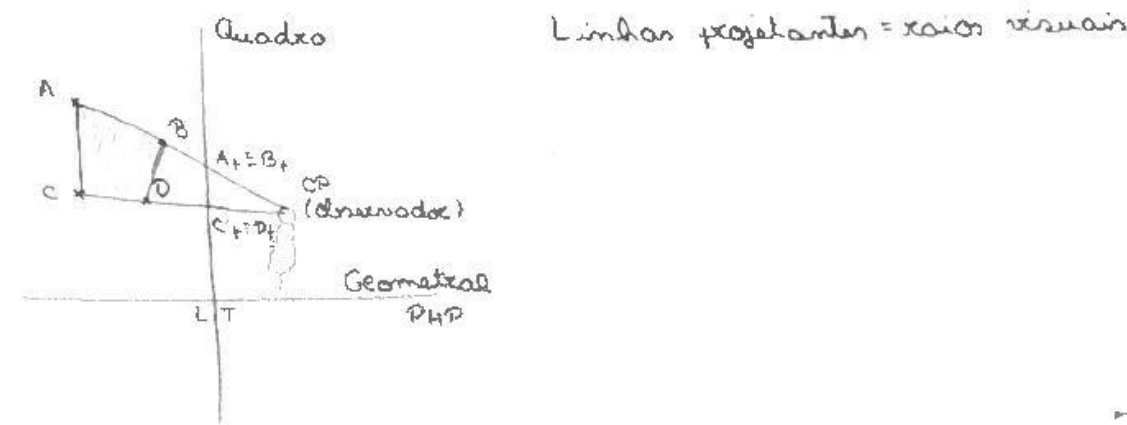 Quadro
Linhas projetantes = raios visuais
A
B
A₊≡B₊
C
D
CP
(observador)
C₊≡D₊
Geometral
LT
PHP